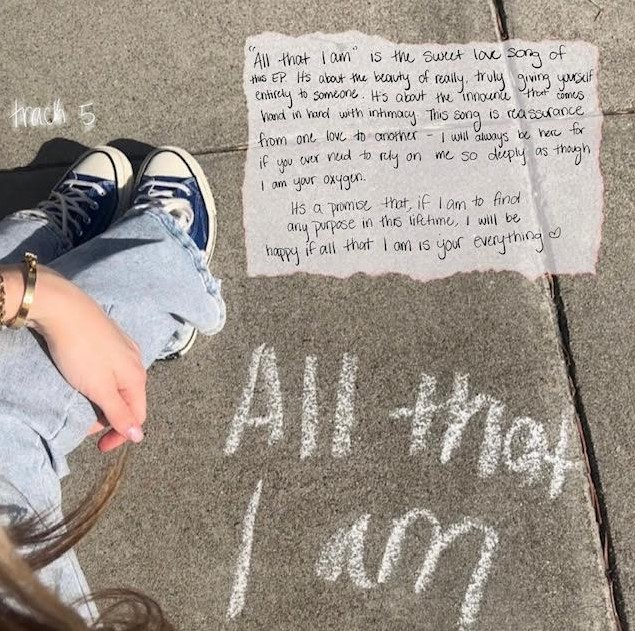 "All that I am" is the sweet love song of
this EP. It's about the beauty of really, truly giving yourself
entirely to someone. It's about the innocence that comes
hand in hand with intimacy. This song is reassurance
from one love to another - I will always be here for
if you ever need to rely on me so deeply as though
I am your oxygen.
Its a promise that, if I am to find
any purpose in this lifetime, I will be
happy if all that I am is your everything ♡
track 5
All that
I am